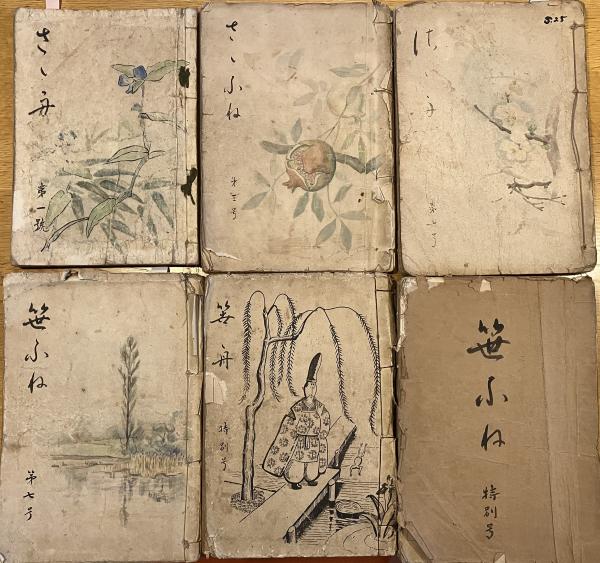 さゝ舟
第一號
さゝふね
第三号
8.25
第七号
笹ふね
第七号
笹舟
特別号
笹ふね
特別号